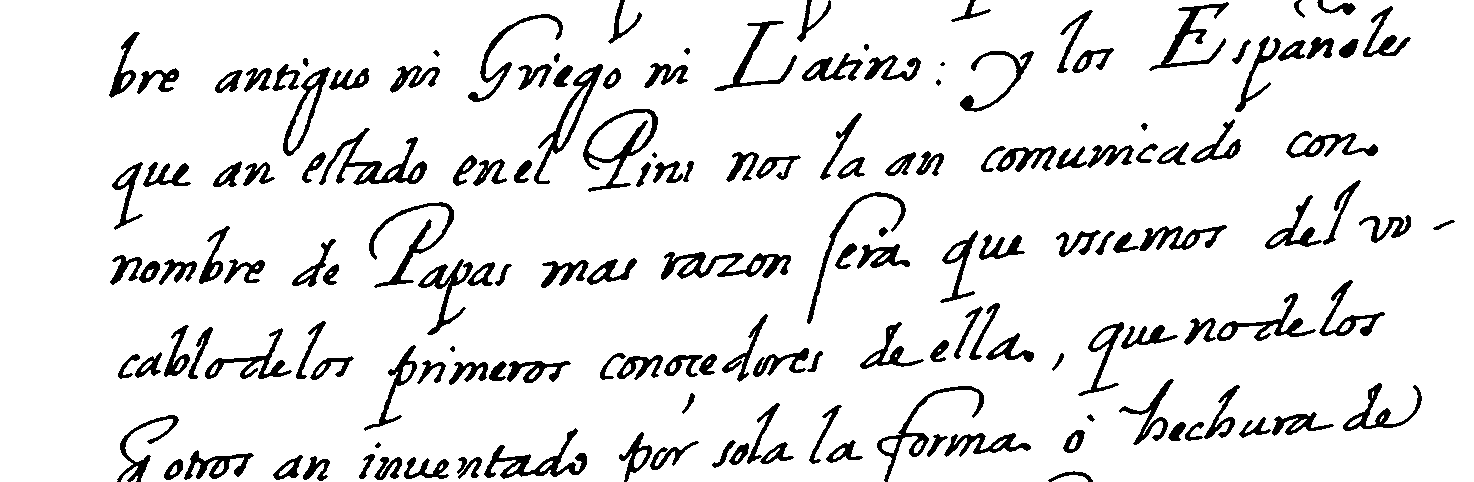 bre antiguo ni Griego ni Latino: y los Españoles
que an estado en el Piru nos la an comunicado con
nombre de Papas mas razon sera que usemos del vo-
cablo de los primeros conoçedores de ella, que no de los
q̃ otros an inventado por sola la forma ó hechura de